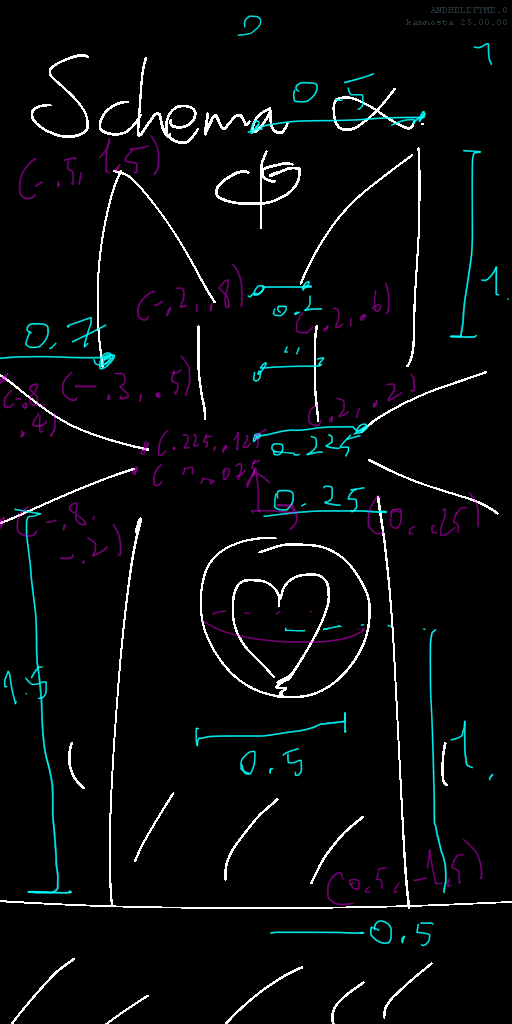 ANDHELEFTME.0
kamnosta 25.00.00
Schema α.
0.5
(-.5, 1.5)
1.
(-.2, .8)
0.2
(.2, .6)
0.7
"
(-.8, .4)
(-.3, .5)
(.2, .2)
(.225, .125)
0.225
(" ", .075)
0.25
(0, .25)
(-.8, -.2)
1.5
1.
0.5
(0.5, -1.5)
0.5